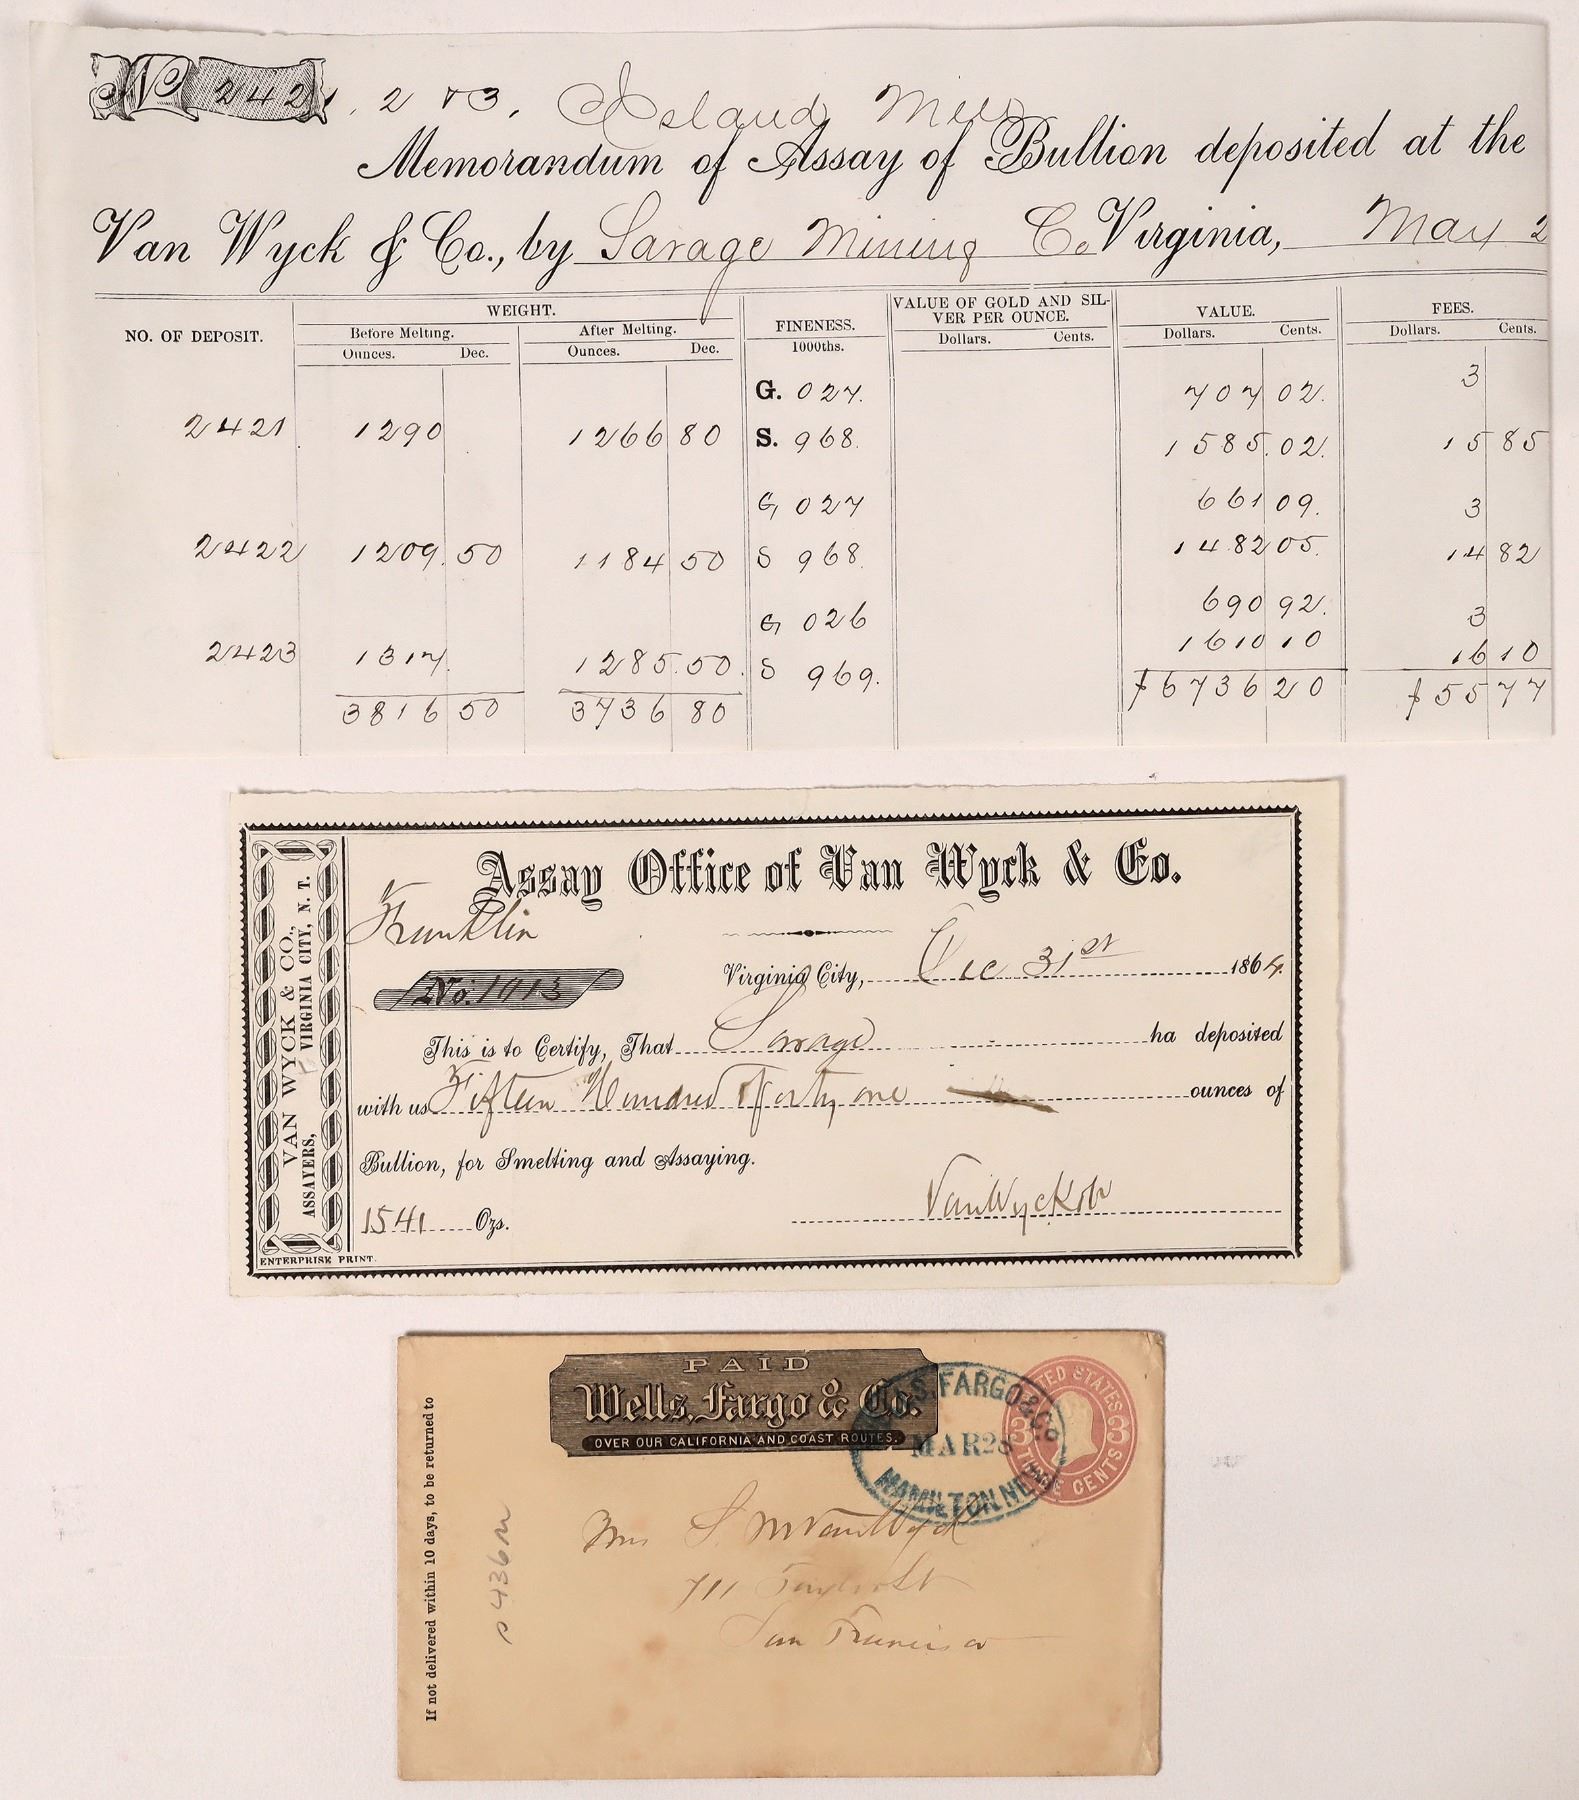 No 2421, 2 & 3, Island Mill
Memorandum of Assay of Bullion deposited at the
Van Wyck & Co., by Savage Mining Co Virginia, May 2
NO. OF DEPOSIT. WEIGHT. FINENESS. VALUE OF GOLD AND SIL-VER PER OUNCE. VALUE. FEES.
Before Melting. After Melting. 1000ths. Dollars. Cents. Dollars. Cents. Dollars. Cents.
Ounces. Dec. Ounces. Dec.
G. 027. 707 02. 3
2421 1290 1266 80 S. 968. 1585.02. 15 85
G 027 661 09. 3
2422 1209.50 1184 50 S 968. 1482 05. 14 82
G 026 690 92. 3
2423 1317. 1285.50. S 969. 1610 10 16 10
3816 50 3736 80 $6736 20 $55 77
Assay Office of Van Wyck & Co.
Franklin
No. 1913
Virginia City, Dec 31st 1864.
This is to Certify, That Savage ha deposited
with us Fifteen Hundred Forty one ounces of
Bullion, for Smelting and Assaying.
1541 Ozs.
VanWyck & Co
VAN WYCK & CO.,
ASSAYERS, VIRGINIA CITY, N. T.
ENTERPRISE PRINT.
PAID
Wells, Fargo & Co.
OVER OUR CALIFORNIA AND COAST ROUTES.
WELLS, FARGO & Co
MAR 28
HAMILTON NEV
UNITED STATES
3 3
THREE CENTS
If not delivered within 10 days, to be returned to
Mrs S. M VanWyck
711 Taylor St
San Francisco